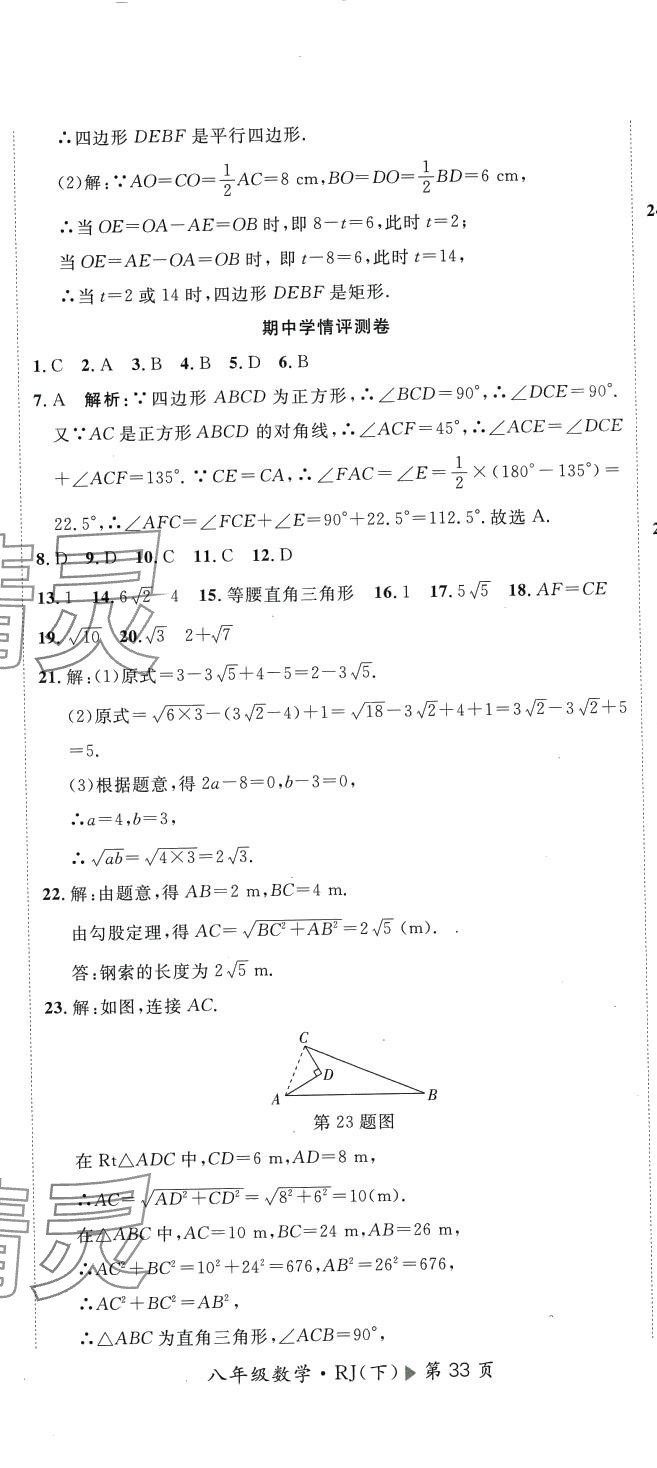 ∴四边形 DEBF 是平行四边形.
(2)解:∵AO=CO=1/2AC=8 cm,BO=DO=1/2BD=6 cm,
∴当 OE=OA-AE=OB 时,即 8-t=6,此时 t=2;
当 OE=AE-OA=OB 时, 即 t-8=6,此时 t=14,
∴当 t=2 或 14 时,四边形 DEBF 是矩形.
期中学情评测卷
1. C 2. A 3. B 4. B 5. D 6. B
7. A 解析:∵四边形 ABCD 为正方形,∴∠BCD=90°,∴∠DCE=90°.
又∵AC 是正方形 ABCD 的对角线,∴∠ACF=45°,∴∠ACE=∠DCE
+∠ACF=135°. ∵CE=CA,∴∠FAC=∠E=1/2×(180°-135°)=
22.5°,∴∠AFC=∠FCE+∠E=90°+22.5°=112.5°.故选 A.
8. D 9. D 10. C 11. C 12. D
13. 1 14. 6√2 4 15. 等腰直角三角形 16. 1 17. 5√5 18. AF=CE
19. √10 20. √3 2+√7
21. 解:(1)原式=3-3√5+4-5=2-3√5.
(2)原式=√(6×3)-(3√2-4)+1=√18-3√2+4+1=3√2-3√2+5
=5.
(3)根据题意,得 2a-8=0,b-3=0,
∴a=4,b=3,
∴√(ab)=√(4×3)=2√3.
22. 解:由题意,得 AB=2 m,BC=4 m.
由勾股定理,得 AC=√(BC²+AB²)=2√5 (m).
答:钢索的长度为 2√5 m.
23. 解:如图,连接 AC.
C
D
A
B
第 23 题图
在 Rt△ADC 中,CD=6 m,AD=8 m,
∴AC=√(AD²+CD²)=√(8²+6²)=10(m).
在△ABC 中,AC=10 m,BC=24 m,AB=26 m,
∴AC²+BC²=10²+24²=676,AB²=26²=676,
∴AC²+BC²=AB²,
∴△ABC 为直角三角形,∠ACB=90°,
八年级数学·RJ(下) 第 33 页
精灵
精灵